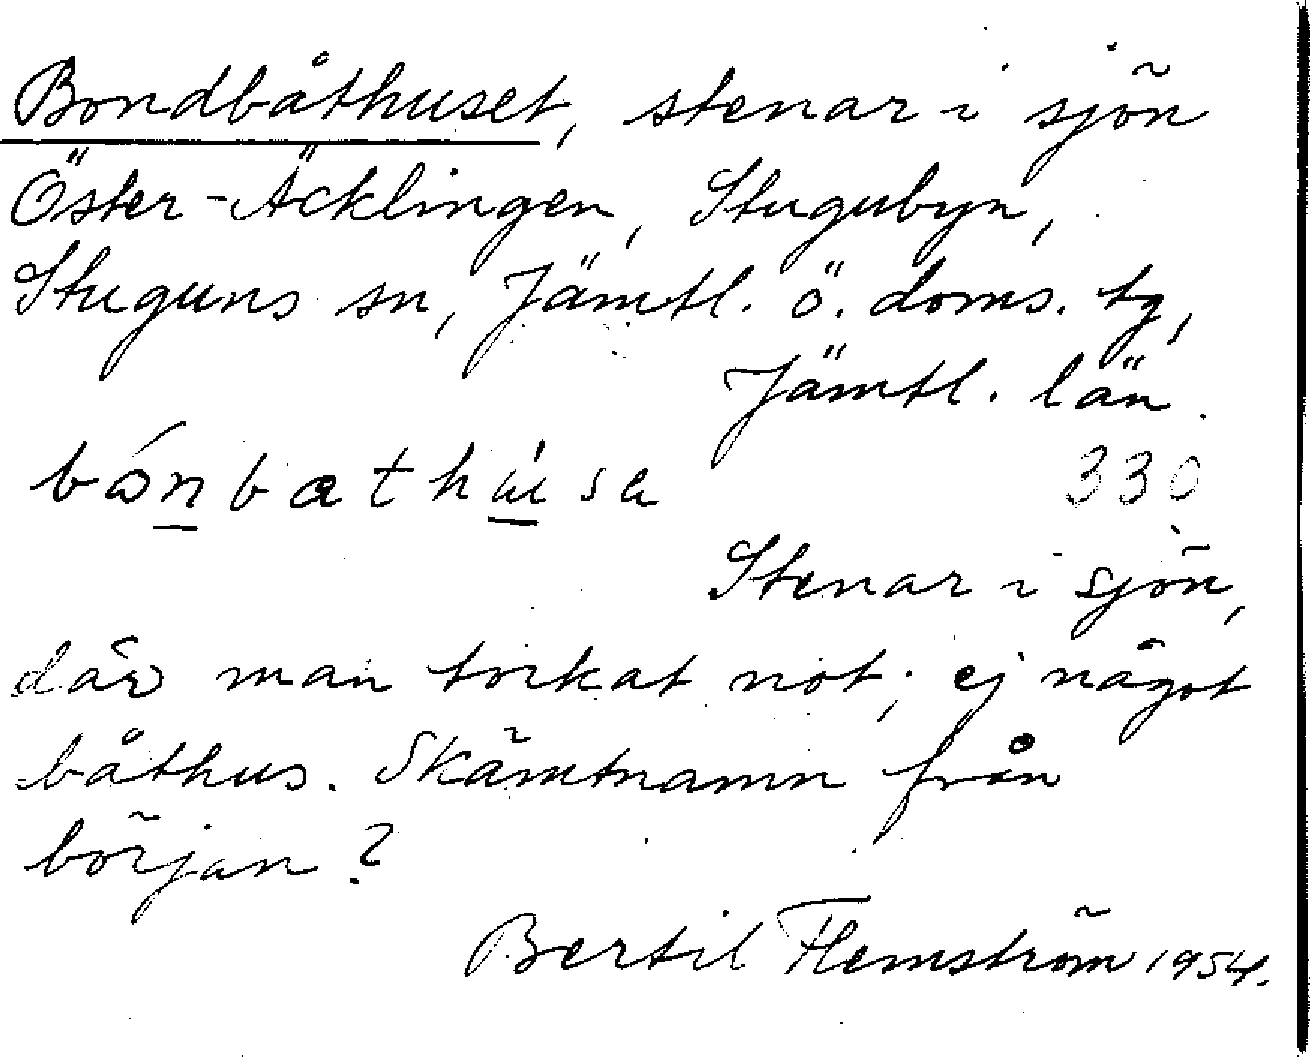 Bondbåthuset, stenar i sjön
Öster-Äcklingen, Stugubyn,
Stuguns sn, Jämtl. ö. doms. tg,
Jämtl. län.
330
Stenar i sjön,
där man torkat not; ej något
båthus. Skämtnamn från
början?
Bertil Flemström 1954.